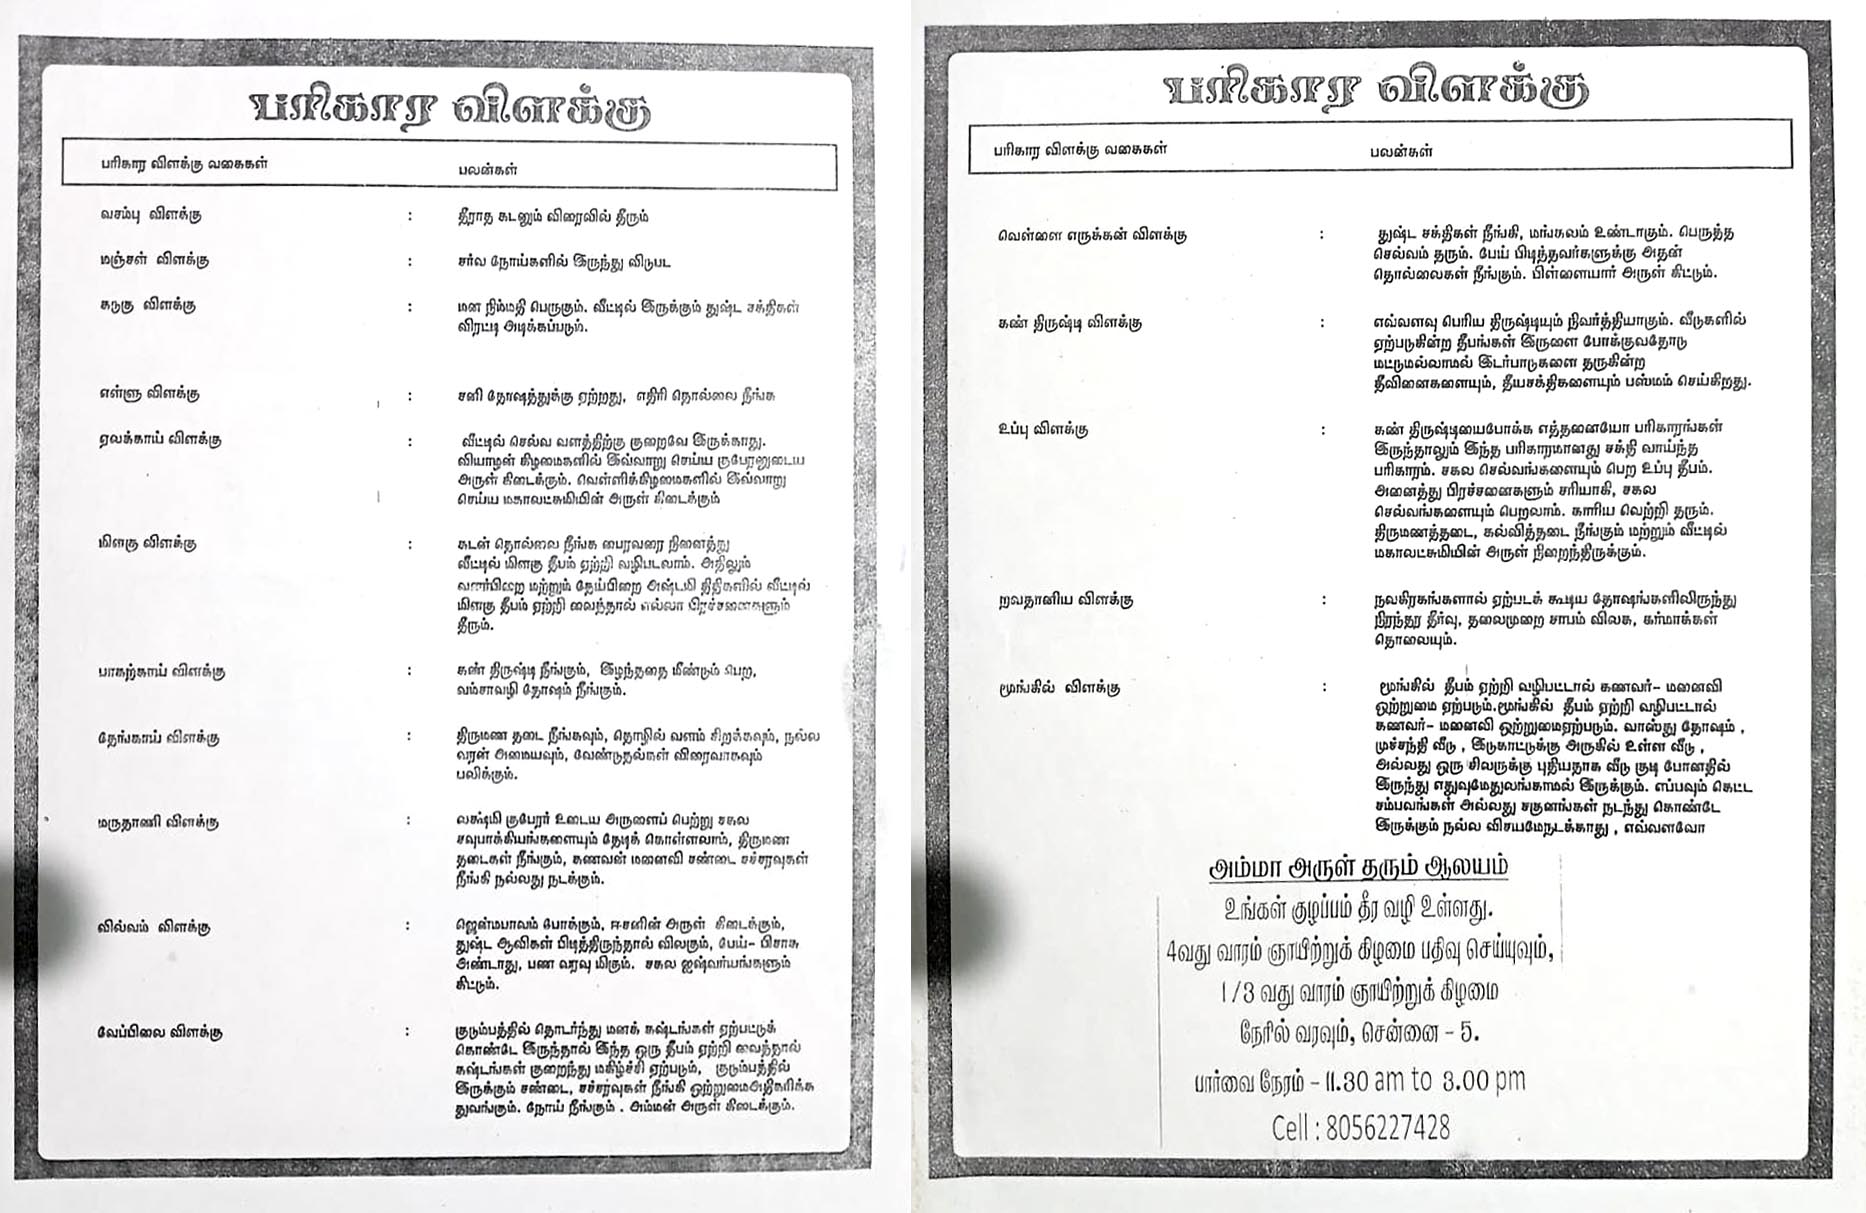 பரிகார விளக்கு
பரிகார விளக்கு வகைகள் பலன்கள்
வசம்பு விளக்கு : தீராத கடனும் விரைவில் தீரும்
மஞ்சள் விளக்கு : சர்வ நோய்களில் இருந்து விடுபட
கடுகு விளக்கு : மன நிம்மதி பெருகும். வீட்டில் இருக்கும் துஷ்ட சக்திகள்
விரட்டி அடிக்கப்படும்.
எள்ளு விளக்கு : சனி தோஷத்துக்கு ஏற்றது, எதிரி தொல்லை நீங்க
ஏலக்காய் விளக்கு : வீட்டில் செல்வ வளத்திற்கு குறைவே இருக்காது.
வியாழன் கிழமைகளில் இவ்வாறு செய்ய குபேரனுடைய
அருள் கிடைக்கும். வெள்ளிக்கிழமைகளில் இவ்வாறு
செய்ய மகாலட்சுமியின் அருள் கிடைக்கும்
மிளகு விளக்கு : கடன் தொல்லை நீங்க பைரவரை நினைத்து
வீட்டில் மிளகு தீபம் ஏற்றி வழிபடலாம். அதிலும்
வளர்பிறை மற்றும் தேய்பிறை அஷ்டமி திதிகளில் வீட்டில்
மிளகு தீபம் ஏற்றி வைந்தால் எல்லா பிரச்சனைகளும்
தீரும்.
பாகற்காய் விளக்கு : கண் திருஷ்டி நீங்கும், இழந்ததை மீண்டும் பெற,
வம்சாவழி தோஷம் நீங்கும்.
தேங்காய் விளக்கு : திருமண தடை நீங்கவும், தொழில் வளம் சிறக்கவும், நல்ல
வரன் அமையவும், வேண்டுதல்கள் விரைவாகவும்
பலிக்கும்.
மருதாணி விளக்கு : லக்ஷ்மி குபேரர் உடைய அருளைப் பெற்று சகல
சவுபாக்கியங்களையும் தேடிக் கொள்ளலாம், திருமண
தடைகள் நீங்கும், கணவன் மனைவி சண்டை சச்சரவுகள்
நீங்கி நல்லது நடக்கும்.
வில்வம் விளக்கு : ஜென்மபாவம் போக்கும், ஈசனின் அருள் கிடைக்கும்,
துஷ்ட ஆவிகள் பிடித்திருந்தால் விலகும், பேய்- பிசாசு
அண்டாது, பண வரவு மிகும். சகல ஐஷ்வர்யங்களும்
கிட்டும்.
வேப்பிலை விளக்கு : குடும்பத்தில் தொடர்ந்து மனக் கஷ்டங்கள் ஏற்பட்டுக்
கொண்டே இருந்தால் இந்த ஒரு தீபம் ஏற்றி வைத்தால்
கஷ்டங்கள் குறைந்து மகிழ்ச்சி ஏற்படும், குடும்பத்தில்
இருக்கும் சண்டை, சச்சரவுகள் நீங்கி ஒற்றுமைஅதிகரிக்க
துவங்கும். நோய் நீங்கும் . அம்மன் அருள் கிடைக்கும்.
பரிகார விளக்கு
பரிகார விளக்கு வகைகள் பலன்கள்
வெள்ளை எருக்கன் விளக்கு : துஷ்ட சக்திகள் நீங்கி, மங்கலம் உண்டாகும். பெருத்த
செல்வம் தரும். பேய் பிடித்தவர்களுக்கு அதன்
தொல்லைகள் நீங்கும். பிள்ளையார் அருள் கிட்டும்.
கண் திருஷ்டி விளக்கு : எவ்வளவு பெரிய திருஷ்டியும் நிவர்த்தியாகும். வீடுகளில்
ஏற்படுகின்ற தீபங்கள் இருளை போக்குவதோடு
மட்டுமல்லாமல் இடர்பாடுகளை தருகின்ற
தீவினைகளையும், தீயசக்திகளையும் பஸ்மம் செய்கிறது.
உப்பு விளக்கு : கண் திருஷ்டியைபோக்க எத்தனையோ பரிகாரங்கள்
இருந்தாலும் இந்த பரிகாரமானது சக்தி வாய்ந்த
பரிகாரம். சகல செல்வங்களையும் பெற உப்பு தீபம்.
அனைத்து பிரச்சனைகளும் சரியாகி, சகல
செல்வங்களையும் பெறலாம். காரிய வெற்றி தரும்.
திருமணத்தடை, கல்வித்தடை நீங்கும் மற்றும் வீட்டில்
மகாலட்சுமியின் அருள் நிறைந்திருக்கும்.
றவதானிய விளக்கு : நவகிரகங்களால் ஏற்படக் கூடிய தோஷங்களிலிருந்து
நிரந்தர தீர்வு, தலைமுறை சாபம் விலக, கர்மாக்கள்
தொலையும்.
மூங்கில் விளக்கு : மூங்கில் தீபம் ஏற்றி வழிபட்டால் கணவர்- மனைவி
ஒற்றுமை ஏற்படும்.மூங்கில் தீபம் ஏற்றி வழிபட்டால்
கணவர்- மனைவி ஒற்றுமைஏற்படும். வாஸ்து தோஷம் ,
முச்சந்தி வீடு , இடுகாட்டுக்கு அருகில் உள்ள வீடு ,
அல்லது ஒரு சிலருக்கு புதியதாக வீடு குடி போனதில்
இருந்து எதுவுமேதுலங்காமல் இருக்கும். எப்பவும் கெட்ட
சம்பவங்கள் அல்லது சகுனங்கள் நடந்து கொண்டே
இருக்கும் நல்ல விசயமேநடக்காது , எவ்வளவோ
அம்மா அருள் தரும் ஆலயம்
உங்கள் குழப்பம் தீர வழி உள்ளது.
4வது வாரம் ஞாயிற்றுக் கிழமை பதிவு செய்யுவும்,
1/3 வது வாரம் ஞாயிற்றுக் கிழமை
நேரில் வரவும், சென்னை - 5.
பார்வை நேரம் - 11.30 am to 3.00 pm
Cell : 8056227428